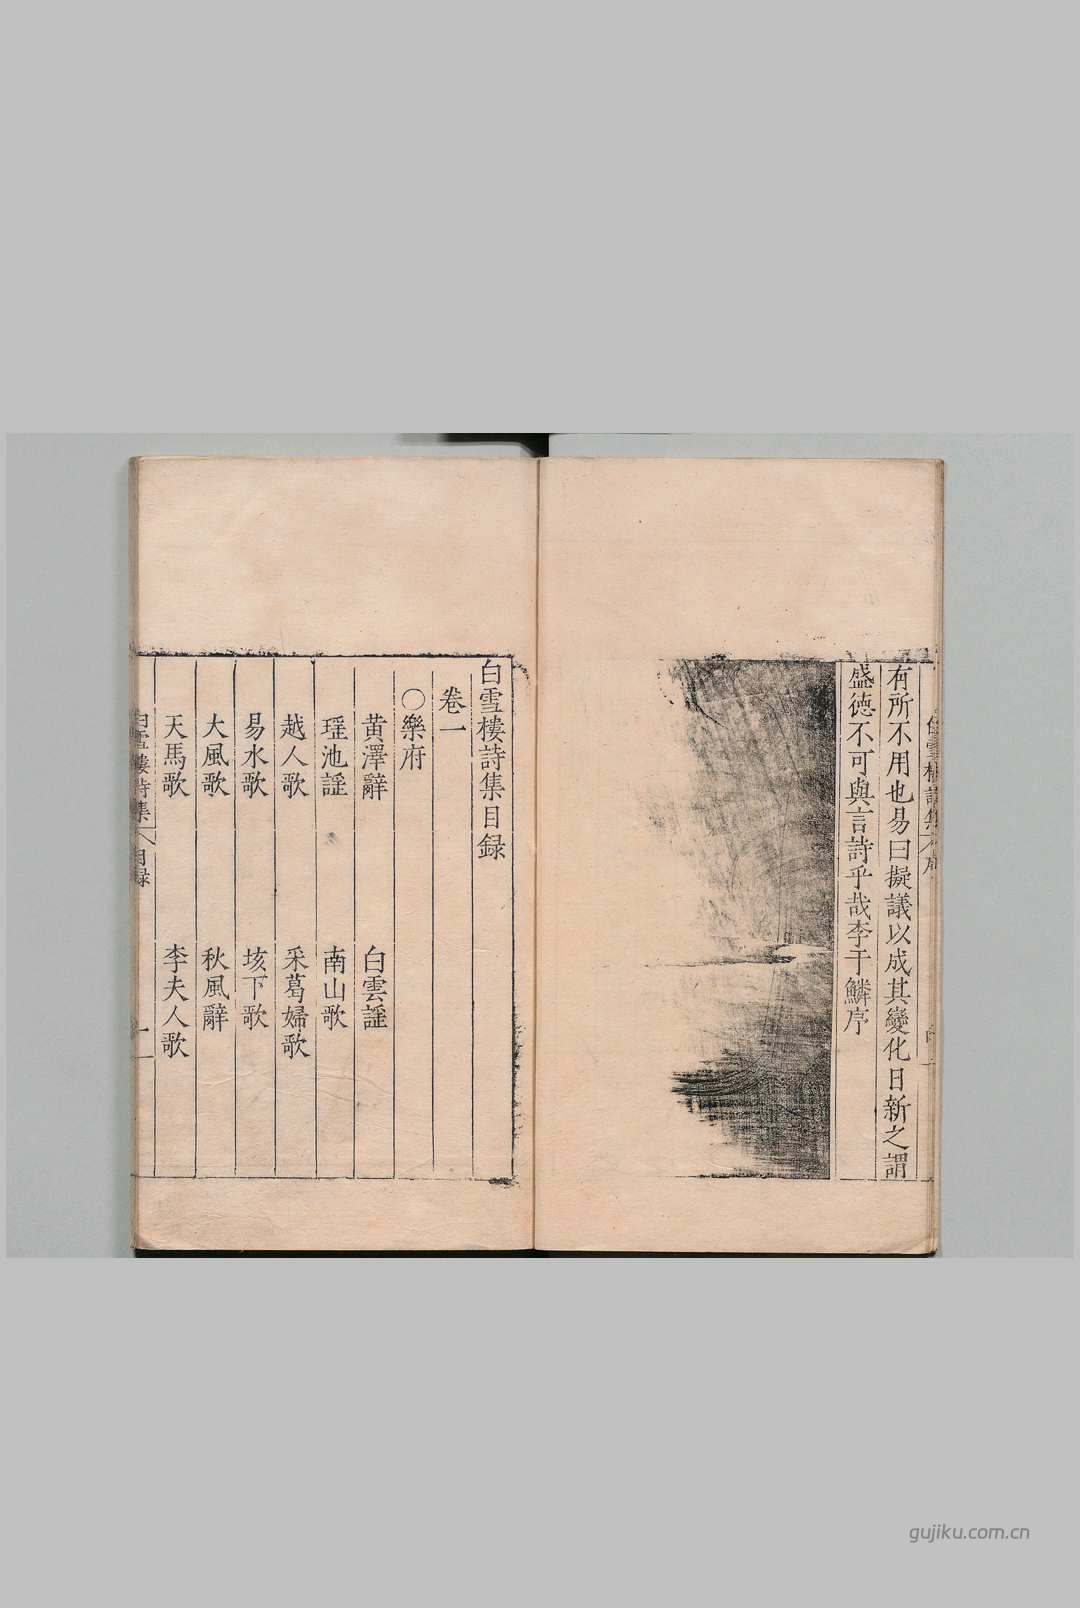 有所不用也易曰擬議以成其變化日新之謂
盛德不可與言詩乎哉李于鱗序
白雪樓詩集目録
卷一
〇樂府
黃澤辭 白雲謡
瑶池謡 南山歌
越人歌 采葛婦歌
易水歌 垓下歌
大風歌 秋風辭
天馬歌 李夫人歌
白雪樓詩集 目録 一
gujiku.com.cn